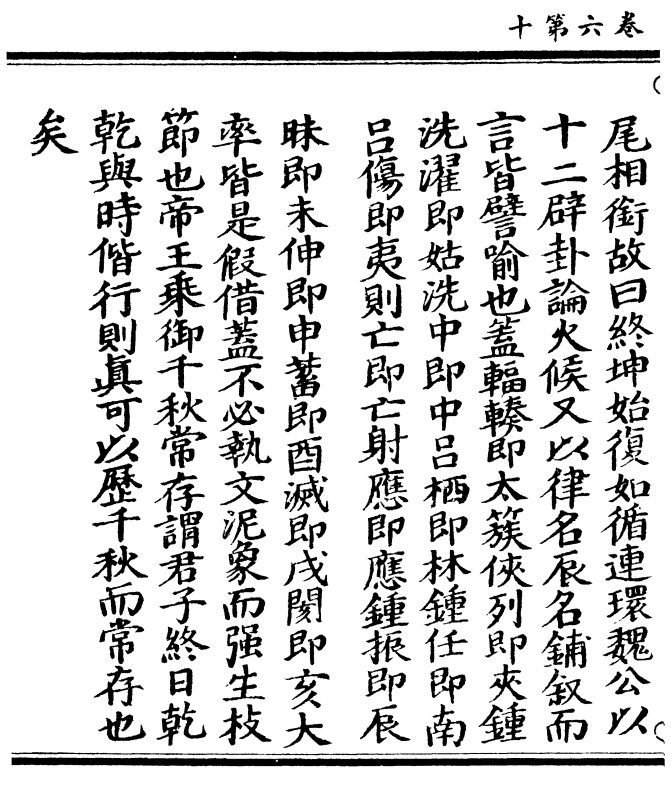 卷六第十
尾相銜故曰終坤始復如循連環魏公以
十二辟卦論火候又以律名辰名鋪叙而
言皆譬喻也蓋輻輳即太簇俠列即夾鍾
洗濯即姑洗中即中呂栖即林鍾任即南
呂傷即夷則亡即亡射應即應鍾振即辰
昧即未伸即申蓄即酉滅即戌閡即亥大
率皆是假借蓋不必執文泥象而强生枝
節也帝王乘御千秋常存謂君子終日乾
乾與時偕行則眞可以歷千秋而常存也
矣